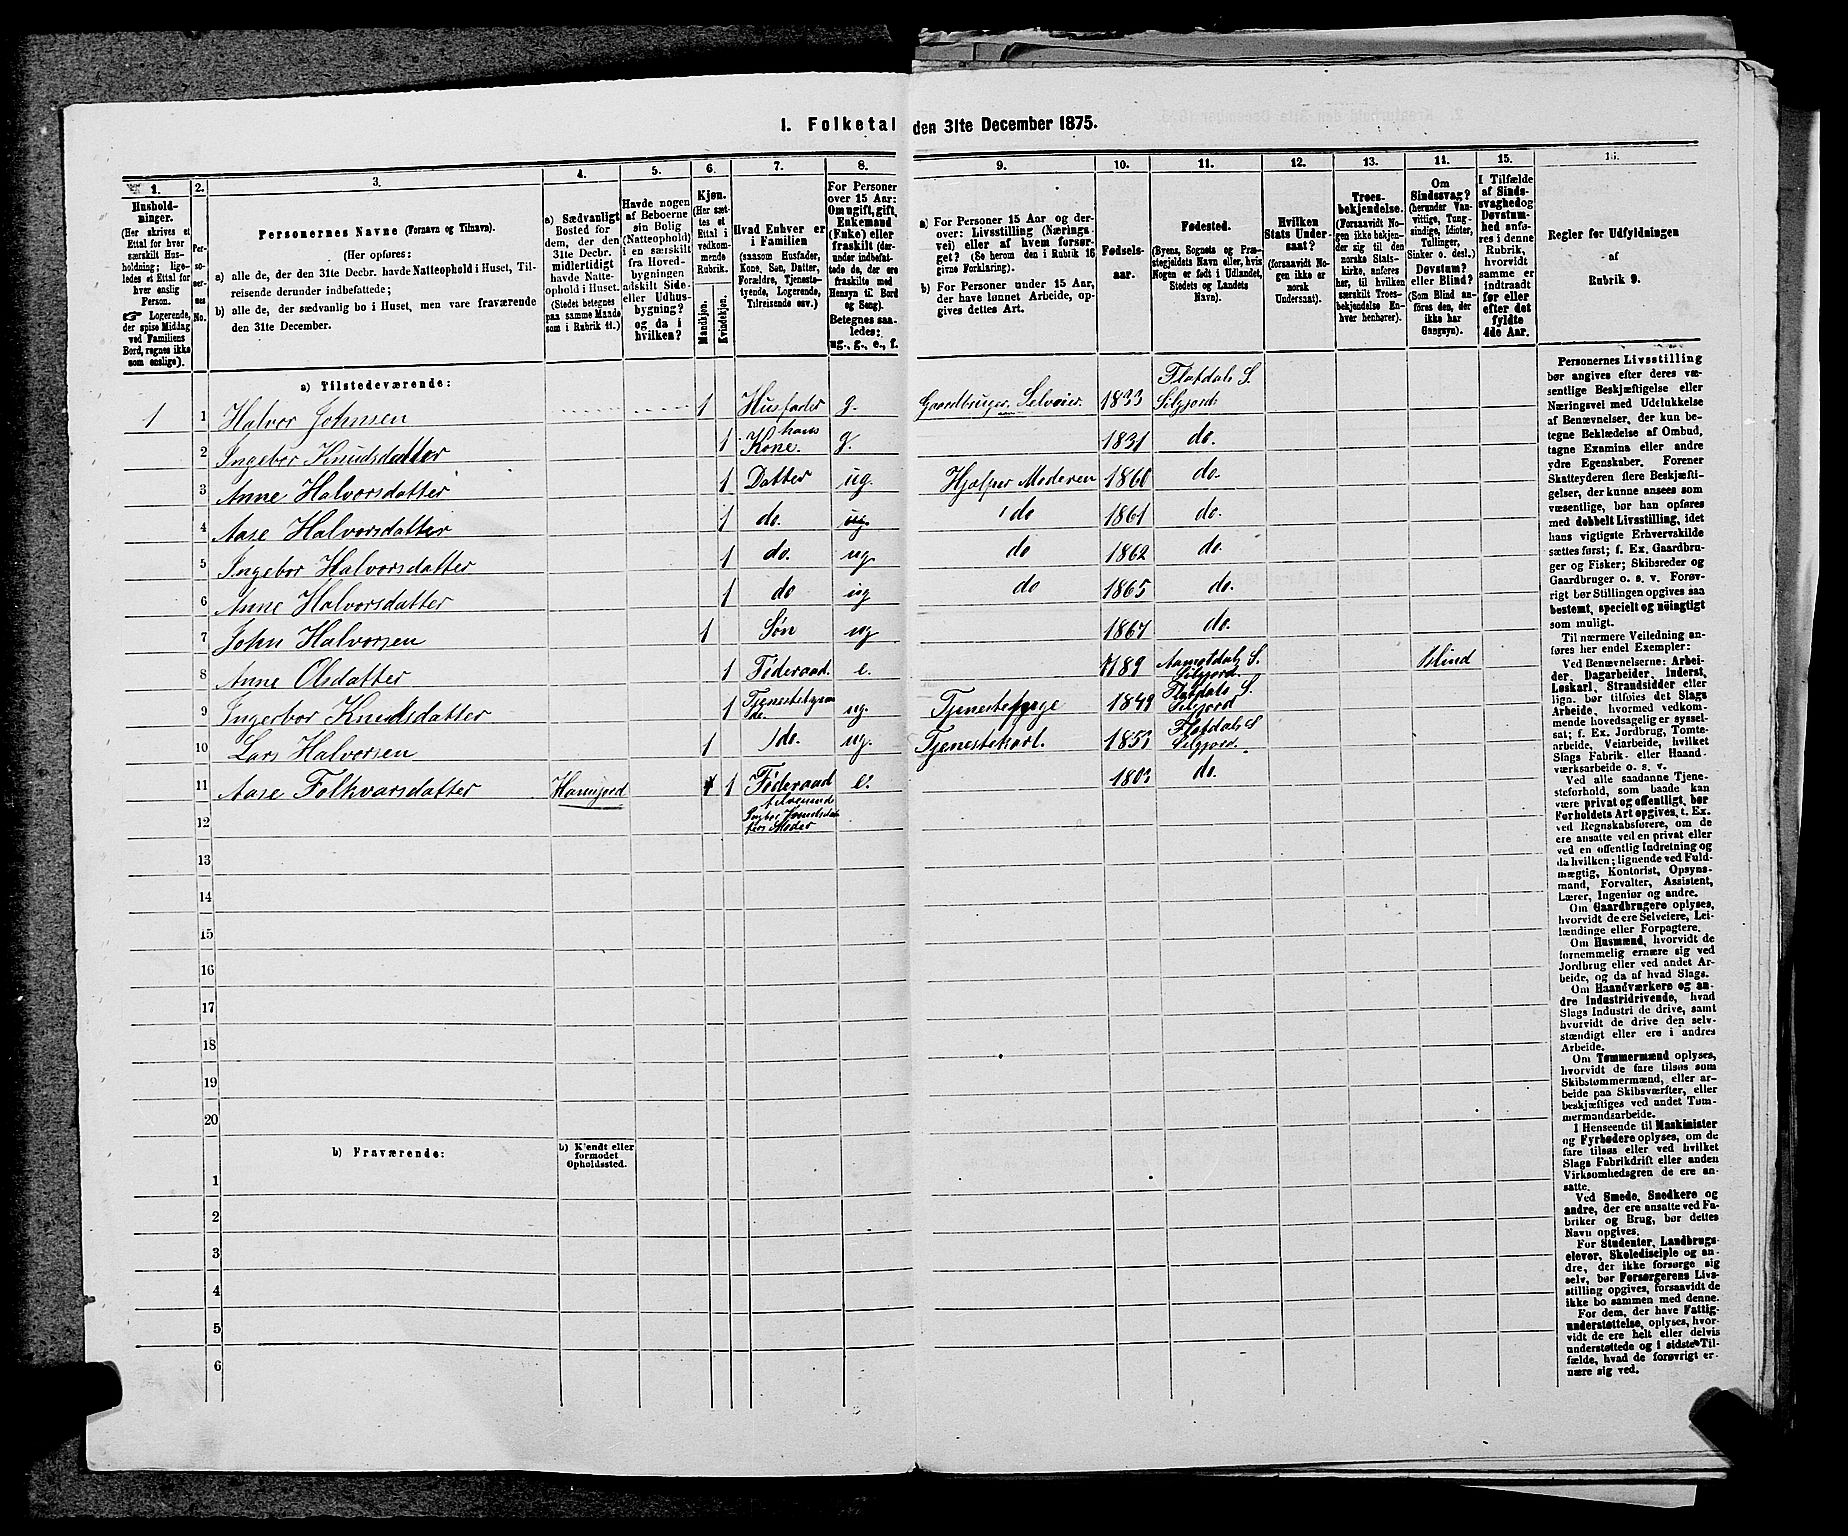 1. Folketal den 31te December 1875.
1.
2.
3.
4.
5.
6.
7.
8.
9.
10.
11.
12.
13.
14.
15.
16.
Hushold-
ninger.
(Her skrives et
Ettal for hver
særskilt Hus-
holdning; lige-
ledes et Ettal for
hver enslig
Person.
☞ Logerende,
der spise Middag
ved Familiens
Bord, regnes ikke
som enslige).
Per-
so-
ner-
nes
No.
Personernes Navne (Fornavn og Tilnavn).
(Her opføres:
a) alle de, der den 31te Decbr. havde Natteophold i Huset, Til-
reisende derunder indbefattede;
b) alle de, der sædvanlig bo i Huset, men vare fraværende
den 31te December.
a) Sædvanligt
Bosted for
dem, der den
31te Decbr.
midlertidigt
havde Natte-
ophold i Huset.
(Stedet betegnes
paa samme Maade
som i Rubrik 11.)
Havde nogen
af Beboerne
sin Bolig
(Natteophold)
i en særskilt
fra Hoved-
bygningen
adskilt Side-
eller Udhus-
bygning?
og da i
hvilken?
Kjøn.
(Her sæt-
tes et
Ettal i
vedkom-
mende
Rubrik.
Mandkjøn.
Kvindekjøn.
Hvad Enhver er
i Familien
(saasom Husfader,
Kone, Søn, Datter,
Forældre, Tjenests-
tyende, Logerende,
Tilreisende osv.)
For Personer
over 15 Aar:
Om ugift, gift,
Enkemand
(Enke) eller
fraskilt (der-
under indbefat-
tede de, der ere
fraskilte med
Hensyn til Bord
og Seng).
Betegnes saa-
ledes:
ug., g., e., f.
a) For Personer 15 Aar og der-
over: Livsstilling (Nærings-
vei) eller af hvem forsør-
get? (Se herom den i Rubrik 16
givne Forklaring).
b) For Personer under 15 Aar,
der have lønnet Arbeide, op-
gives dettes Art.
Fødsels-
aar.
Fødested.
(Byens, Sognets og Præ-
stegjeldets Navn eller, hvis
Nogen er født i Udlandet,
Stedets og Landets
Navn).
Hvilken
Stats Under-
saat?
(forsaavidt No-
gen ikke er
norsk
Undersaat).
Troes-
bekjendelse.
(Forsaavidt No-
gen ikke bekjen-
der sig til den
norske Stats-
kirke, anføres
her, til hvilken
særskilt Troes-
bekjendelse En-
hver henhører).
Om
Sindssvag?
(herunder Van-
vittige, Tung-
sindige, Idioter,
Tullinger,
Sinker o. desl.)
Døvstum?
eller Blind?
(Som Blind an-
føres den, der
ikke har
Gangsyn).
I Tilfælde
af Sinds-
svaghed og
Døvstum-
hed anfø-
res i denne
Rubrik,
hvorvidt
samme er
indtraadt
før eller
efter det
fyldte
4de Aar.
Regler for Udfyldningen
af
Rubrik 9.
a) Tilstedeværende:
1 1 Halvor Johnsen 1 Husfader g. Gaardbruger, Selveier. 1833 Flatdals S. Siljord
2 Ingebor Knudsdatter 1 hans Kone. g. 1831 do.
3 Anne Halvorsdatter 1 Datter ug. Hjælper Moderen 1860 do.
4 Aase Halvorsdatter 1 do. ug. do 1861 do.
5 Ingebor Halvorsdatter 1 do. ug do 1862 do.
6 Anne Halvorsdatter 1 do ug do 1865 do.
7 John Halvorsen 1 Søn ug 1867 do.
8 Anne Olsdatter 1 Føderaad. e. 189 Aamotdals S. Siljord. Blind
9 Ingerbor Knudsdatter 1 ug. Tjenestepige 1849 Flatdals S. Siljord
10 Lars Halvorsen 1 do. ug. Tjenestekarl. 1853 Flatdals S Siljord.
11 Aase Folkvarsdatter 1 Føderaad e. 1803 do.
12 Ingbor Knudsdatters Moder
13
14
15
16
17
18
19
20
b) Fraværende:
b) Kjendt eller
formodet
Opholdssted.
1
2
3
4
5
6
Personernes Livsstilling
bør angives efter deres væ-
sentlige Beskjæftigelse eller
Næringsvei med Udelukkelse
af Benævnelser, der kun be-
tegne Beklædelse af Ombud,
tagne Examina eller andre
ydre Egenskaber. Forener
Skatteyderen flere Beskjæfti-
gelser, der kunne ansees som
væsentlige, bør han opføres
med dobbelt Livsstilling, idet
hans vigtigste Erhvervskilde
sættes først; f. Ex. Gaardbru-
ger og Fisker; Skibsreder og
Gaardbruger o. s. v. Forøv-
rigt bør Stillingen opgives saa
bestemt, specielt og nöiagtigt
som muligt.
Til nærmere Veiledning an-
føres her endel Exempler:
Ved Benævnelserne: Arbei-
der, Dagarbeider, Inderst,
Løskarl, Strandsidder eller
lign. bør tilføies det Slags
Arbeide, hvormed vedkom-
mende hovedsagelig er syssel-
sat; f. Ex. Jordbrug, Tomte-
arbeide, Veiarbeide, hvilket
Slags Fabrik- eller Haand-
værksarbeide o. s. v.
Ved alle saadanne Tjene-
steforhold, som baade kan
være privat og offentligt, bør
Forholdets Art opgives, t. Ex.
ved Regnskabsførere, om de
ere ansatte ved en privat eller
ved en offentlig Indretning og
da hvilken; lignende ved Fuld-
mægtig, Kontorist, Opsyns-
mand, Forvalter, Assistent,
Lærer, Ingeniør og andre.
Om Gaardbrugere oplyses,
hvorvidt de ere Selveiere, Lei-
lændinge eller Forpagtere.
Om Husmænd, hvorvidt de
fornemmelig ernære sig ved
Jordbrug eller ved andet Ar-
beide, og da af hvad Slags.
Om Haandværkere og an-
dre industridrivende, hvad
Slags Industri de drive, samt
hvorvidt de drive den selv-
stændigt eller ere i andres
Arbeide.
Om Tømmermænd oplyses,
hvorvidt de fare tilsøs som
Skibstømmermænd, eller ar-
beide paa Skibsværfter, eller
beskjæftiges ved andet Tøm-
mermandsarbeide.
I Henseende til Maskinister
og Fyrbødere oplyses, om de
fare tilsøs eller ved hvilket
Slags Fabrikdrift eller anden
Virksomhedsgren de ere an-
satte.
Ved Smede, Snedkere og
andre, der ere ansatte ved Fa-
briker og Brug, bør dettes
Navn opgives.
For Studenter, Landbrugs-
elever, Skoledisciple og an-
dre, der ikke forsørge sig
selv, bør Forsørgerens Livs-
stilling opgives, forsaavidt de
ikke bo sammen med denne.
For dem, der have Fattig-
understøttelse, oplyses, hvor-
vidt de ere helt eller delvis
understøttede og i sidste Til-
fælde, hvad de forøvrigt er-
nære sig ved.